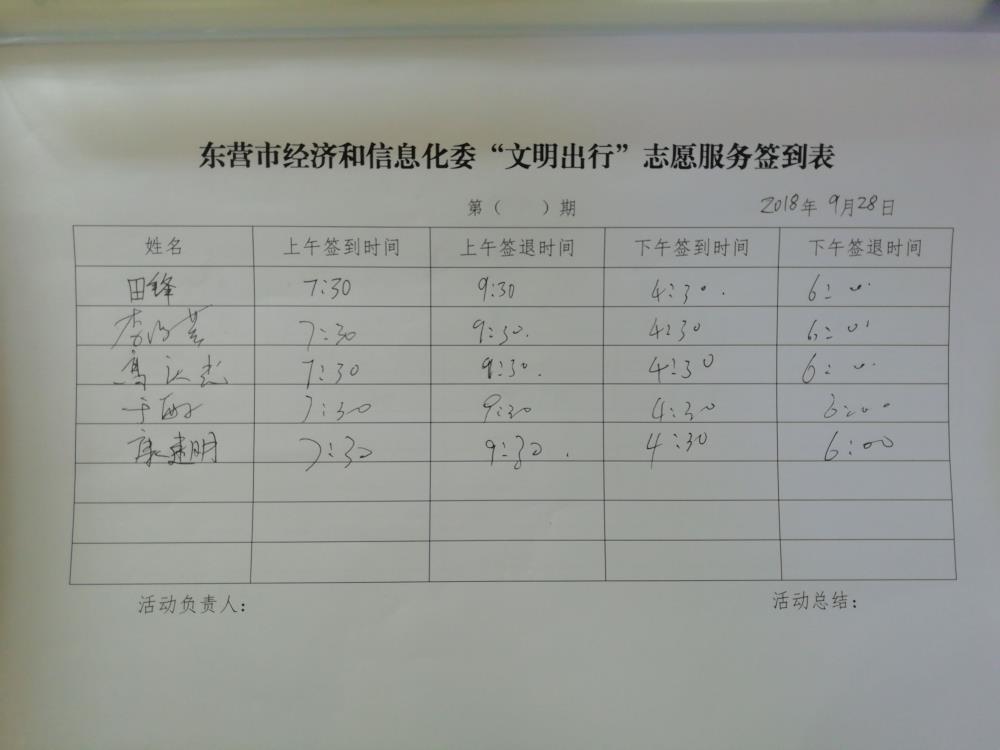 东营市经济和信息化委“文明出行”志愿服务签到表
第（ ）期 2018年9月28日
姓名 上午签到时间 上午签退时间 下午签到时间 下午签退时间
田锋 7:30 9:30 4:30. 6:00
李 7:30 9:30. 4:30 6:00
7:30 9:30. 4:30 6:00
于 7:30 9:30 4:30 6:00
康建明 7:30 9:30. 4:30 6:00
活动负责人： 活动总结：